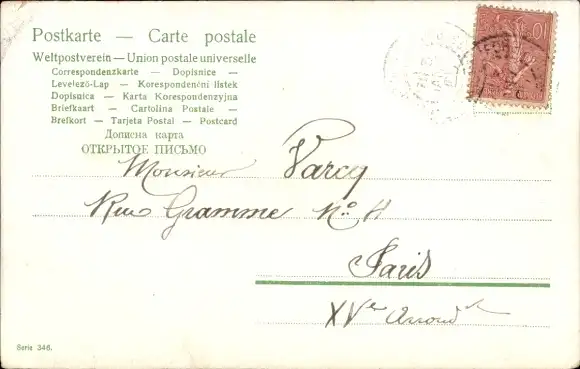 Postkarte — Carte postale
Weltpostverein — Union postale universelle
Correspondenzkarte — Dopisnice —
Levelező-Lap — Korespondenční listek
Dopisnica — Karta Korespondenzyjna
Briefkaart — Cartolina Postale —
Brefkort — Tarjeta Postal — Postcard
Дописна карта
ОТКРЫТОЕ ПИСЬМО
10
Monsieur Varcq
Rue Gramme No 4
Paris
XVe Arrondt
Serie 346.